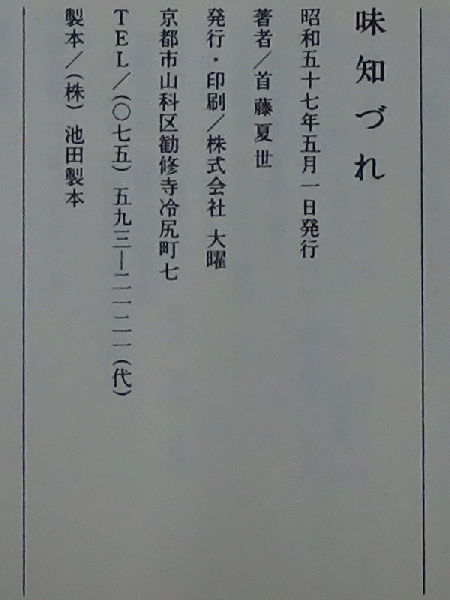 味知づれ
昭和五十七年五月一日発行
著者／首藤夏世
発行・印刷／株式会社 大曜
京都市山科区勧修寺冷尻町七
TEL／(〇七五)五九三―二一二一(代)
製本／(株) 池田製本